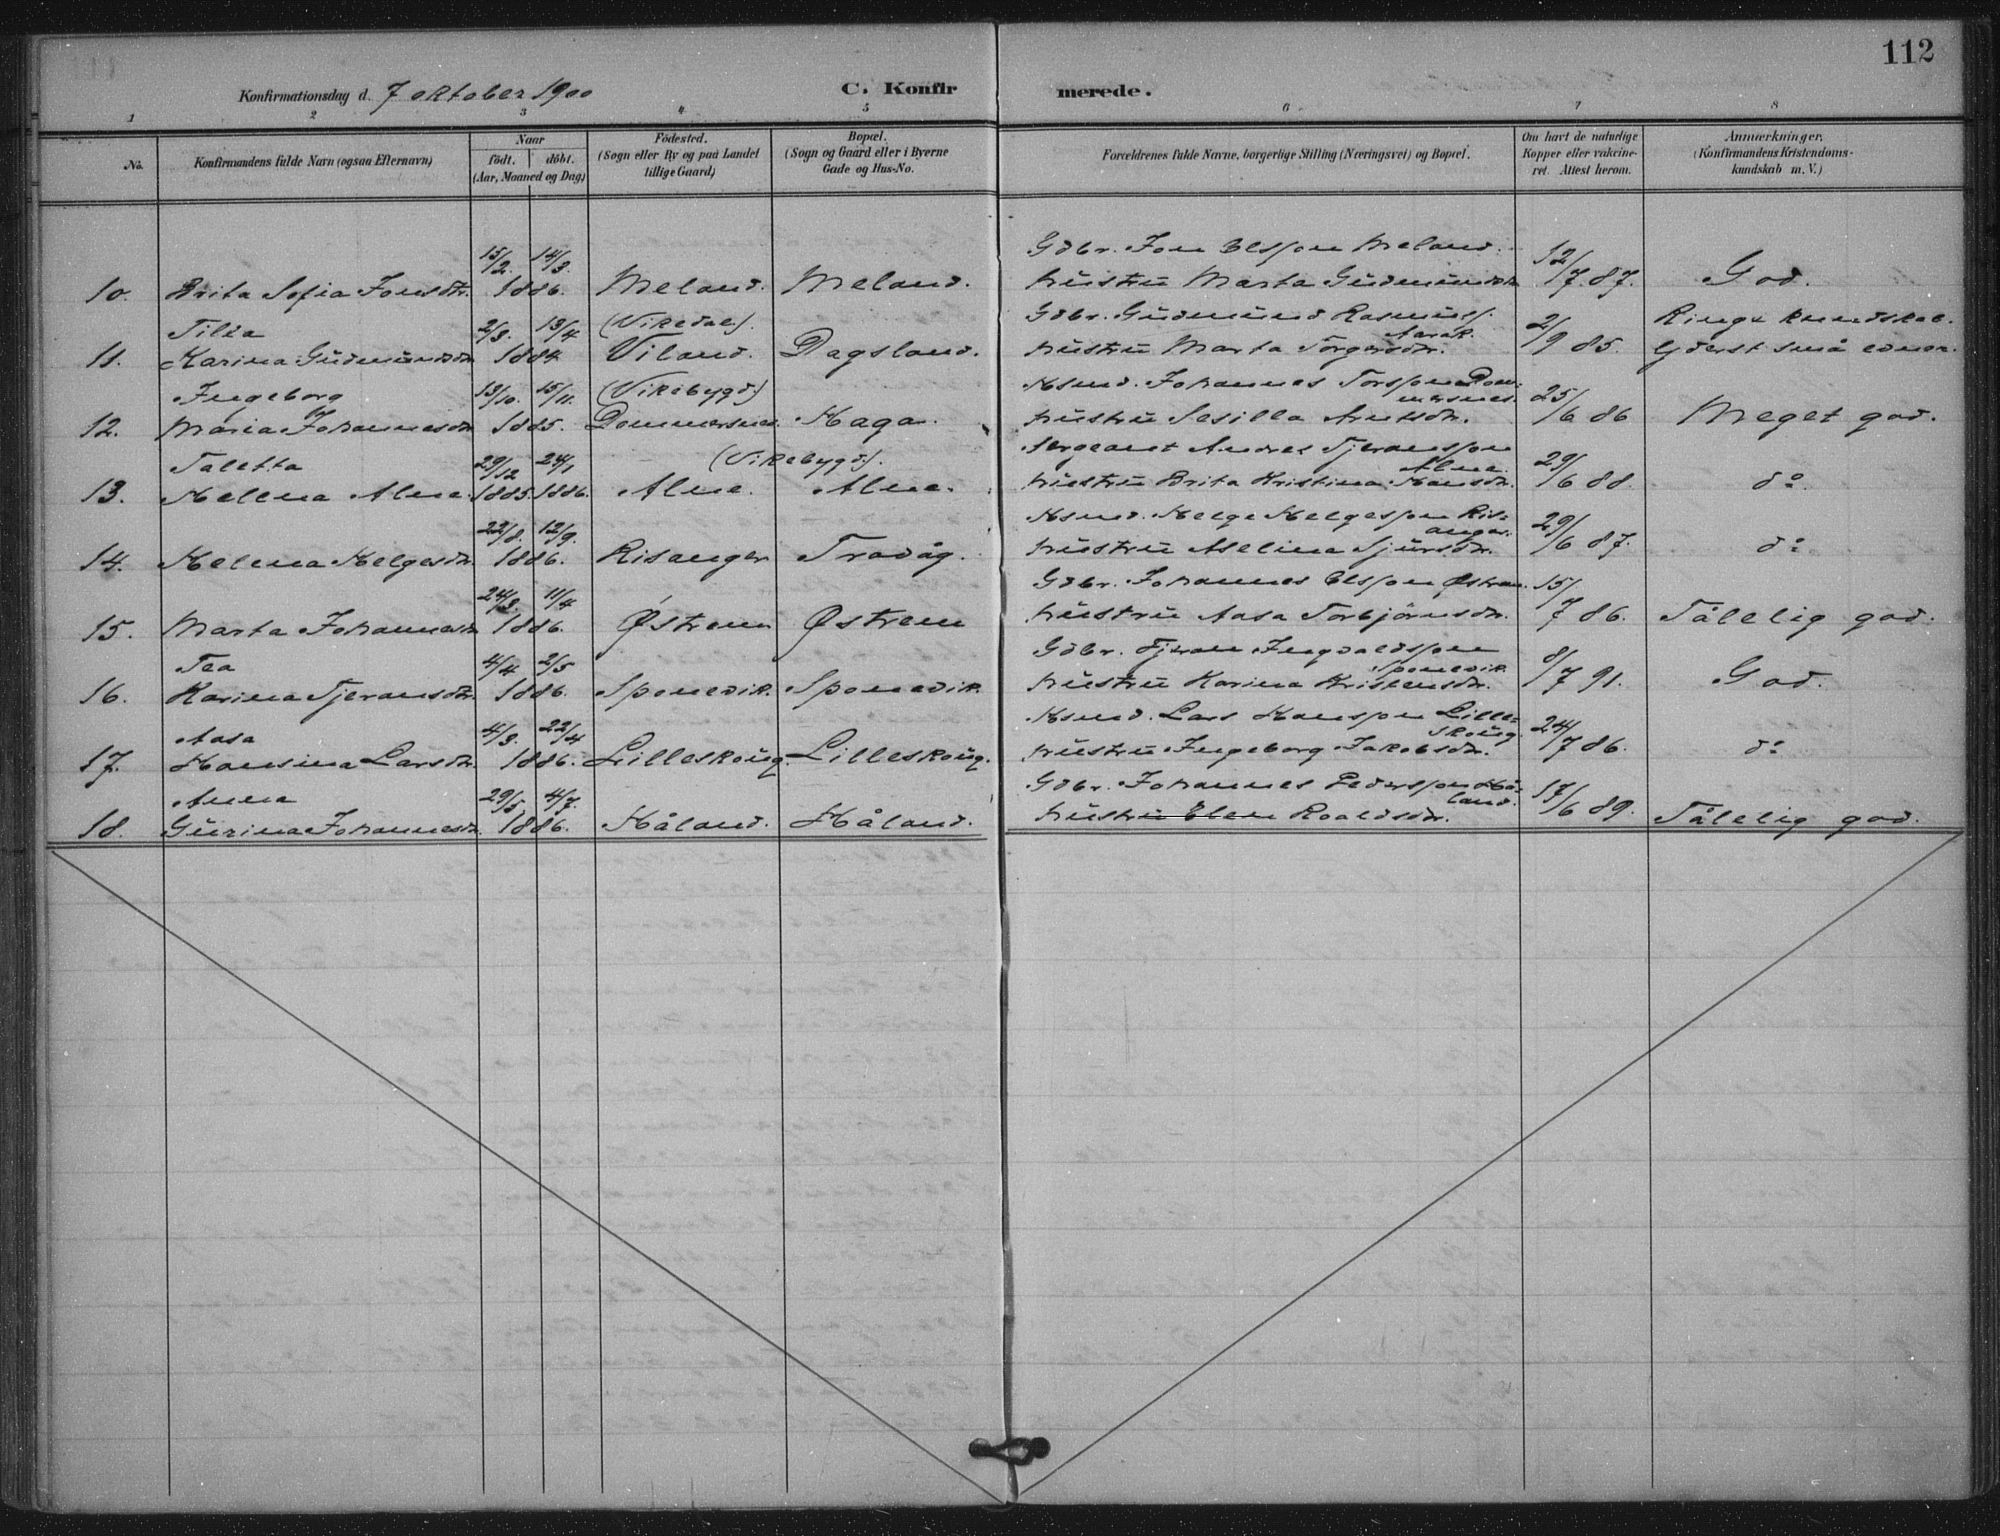 112
Konfirmationsdag d. 7 oktober 1900 C. Konfirmerede.
1 2 3 4 5 6 7 8
No. Konfirmandens fulde Navn (ogsaa Efternavn) Naar födt. döbt. (Aar, Maaned og Dag) Födested. (Sogn eller By og paa Landet tillige Gaard) Bopæl. (Sogn og Gaard eller i Byerne Gade og Hus-No. Forældrenes fulde Navne, borgerlige Stilling (Næringsvei) og Bopæl. Om havt de naturlige Kopper eller vakcineret. Attest herom. Anmærkninger. (Konfirmandens Kristendomskundskab m. V.)
15/2. 14/3. Gdbr. Jon Elsson Meland. 12/
10. Brita Sofia Jonsdtr. 1886. Meland. Meland. hustru Marta Gudmundsdtr. /7 87. God.
Tilda 2/3. 13/4 (Vikedal). Gdbr. Gudmund Rasmuss. 2/ Ringe kundskab.
11. Karina Gudmundsdtr. 1884. Viland. Dagsland. hustru Marta Torgersdtr. Aarak. /9 85. Yderst små evner.
Ingeborg 13/10. 15/11. (Vikebygd) Hsmd. Johannes Torsson Dommersnes. 25/
12. Maria Johannesdtr. 1885. Dommersnes. Haga. hustru Sesilla Arntsdtr. /6 86 Meget god.
Taletta 29/12 24/1 (Vikebygd). Sergeant Andres Tjeransson Alne. 29/
13. Helena Alne. 1885. 1886. Alne. Alne. hustru Brita Kristina Hansdtr. /6 88. do.
22/8. 12/9. Hsmd. Helge Helgesson Risanger. 29/
14. Helena Helgesdtr. 1886. Risanger Tradåg. hustru Aselina Sjursdtr. /6 87. do
24/3. 11/4 Gdbr. Johannes Elsson Østrem. 15/
15. Marta Johannesdtr. 1886. Østrem Østrem hustru Aasa Torbjörnsdtr. /7 86. Tålelig god.
Tea 4/4 2/5 Gdbr. Tjeran Ingvaldsson Sponevik. 8/
16. Karina Tjeransdtr. 1886. Sponevik. Sponevik. hustru Karina Kristensdtr. /7 91. God.
Aasa 4/3. 22/4 Hsmd. Lars Hansson Lilleskoug. 24/
17. Hansina Larsdtr. 1886. Lilleskoug. Lilleskoug. hustru Ingeborg Jakobsdtr. /7 86. do
Anna 29/5 4/7. Gdbr. Johannes Pedersson Håland. 17/
18. Gurina Johannesdtr. 1886. Håland. Håland. hustru Elen Roaldsdtr. /6 89. Tålelig god.